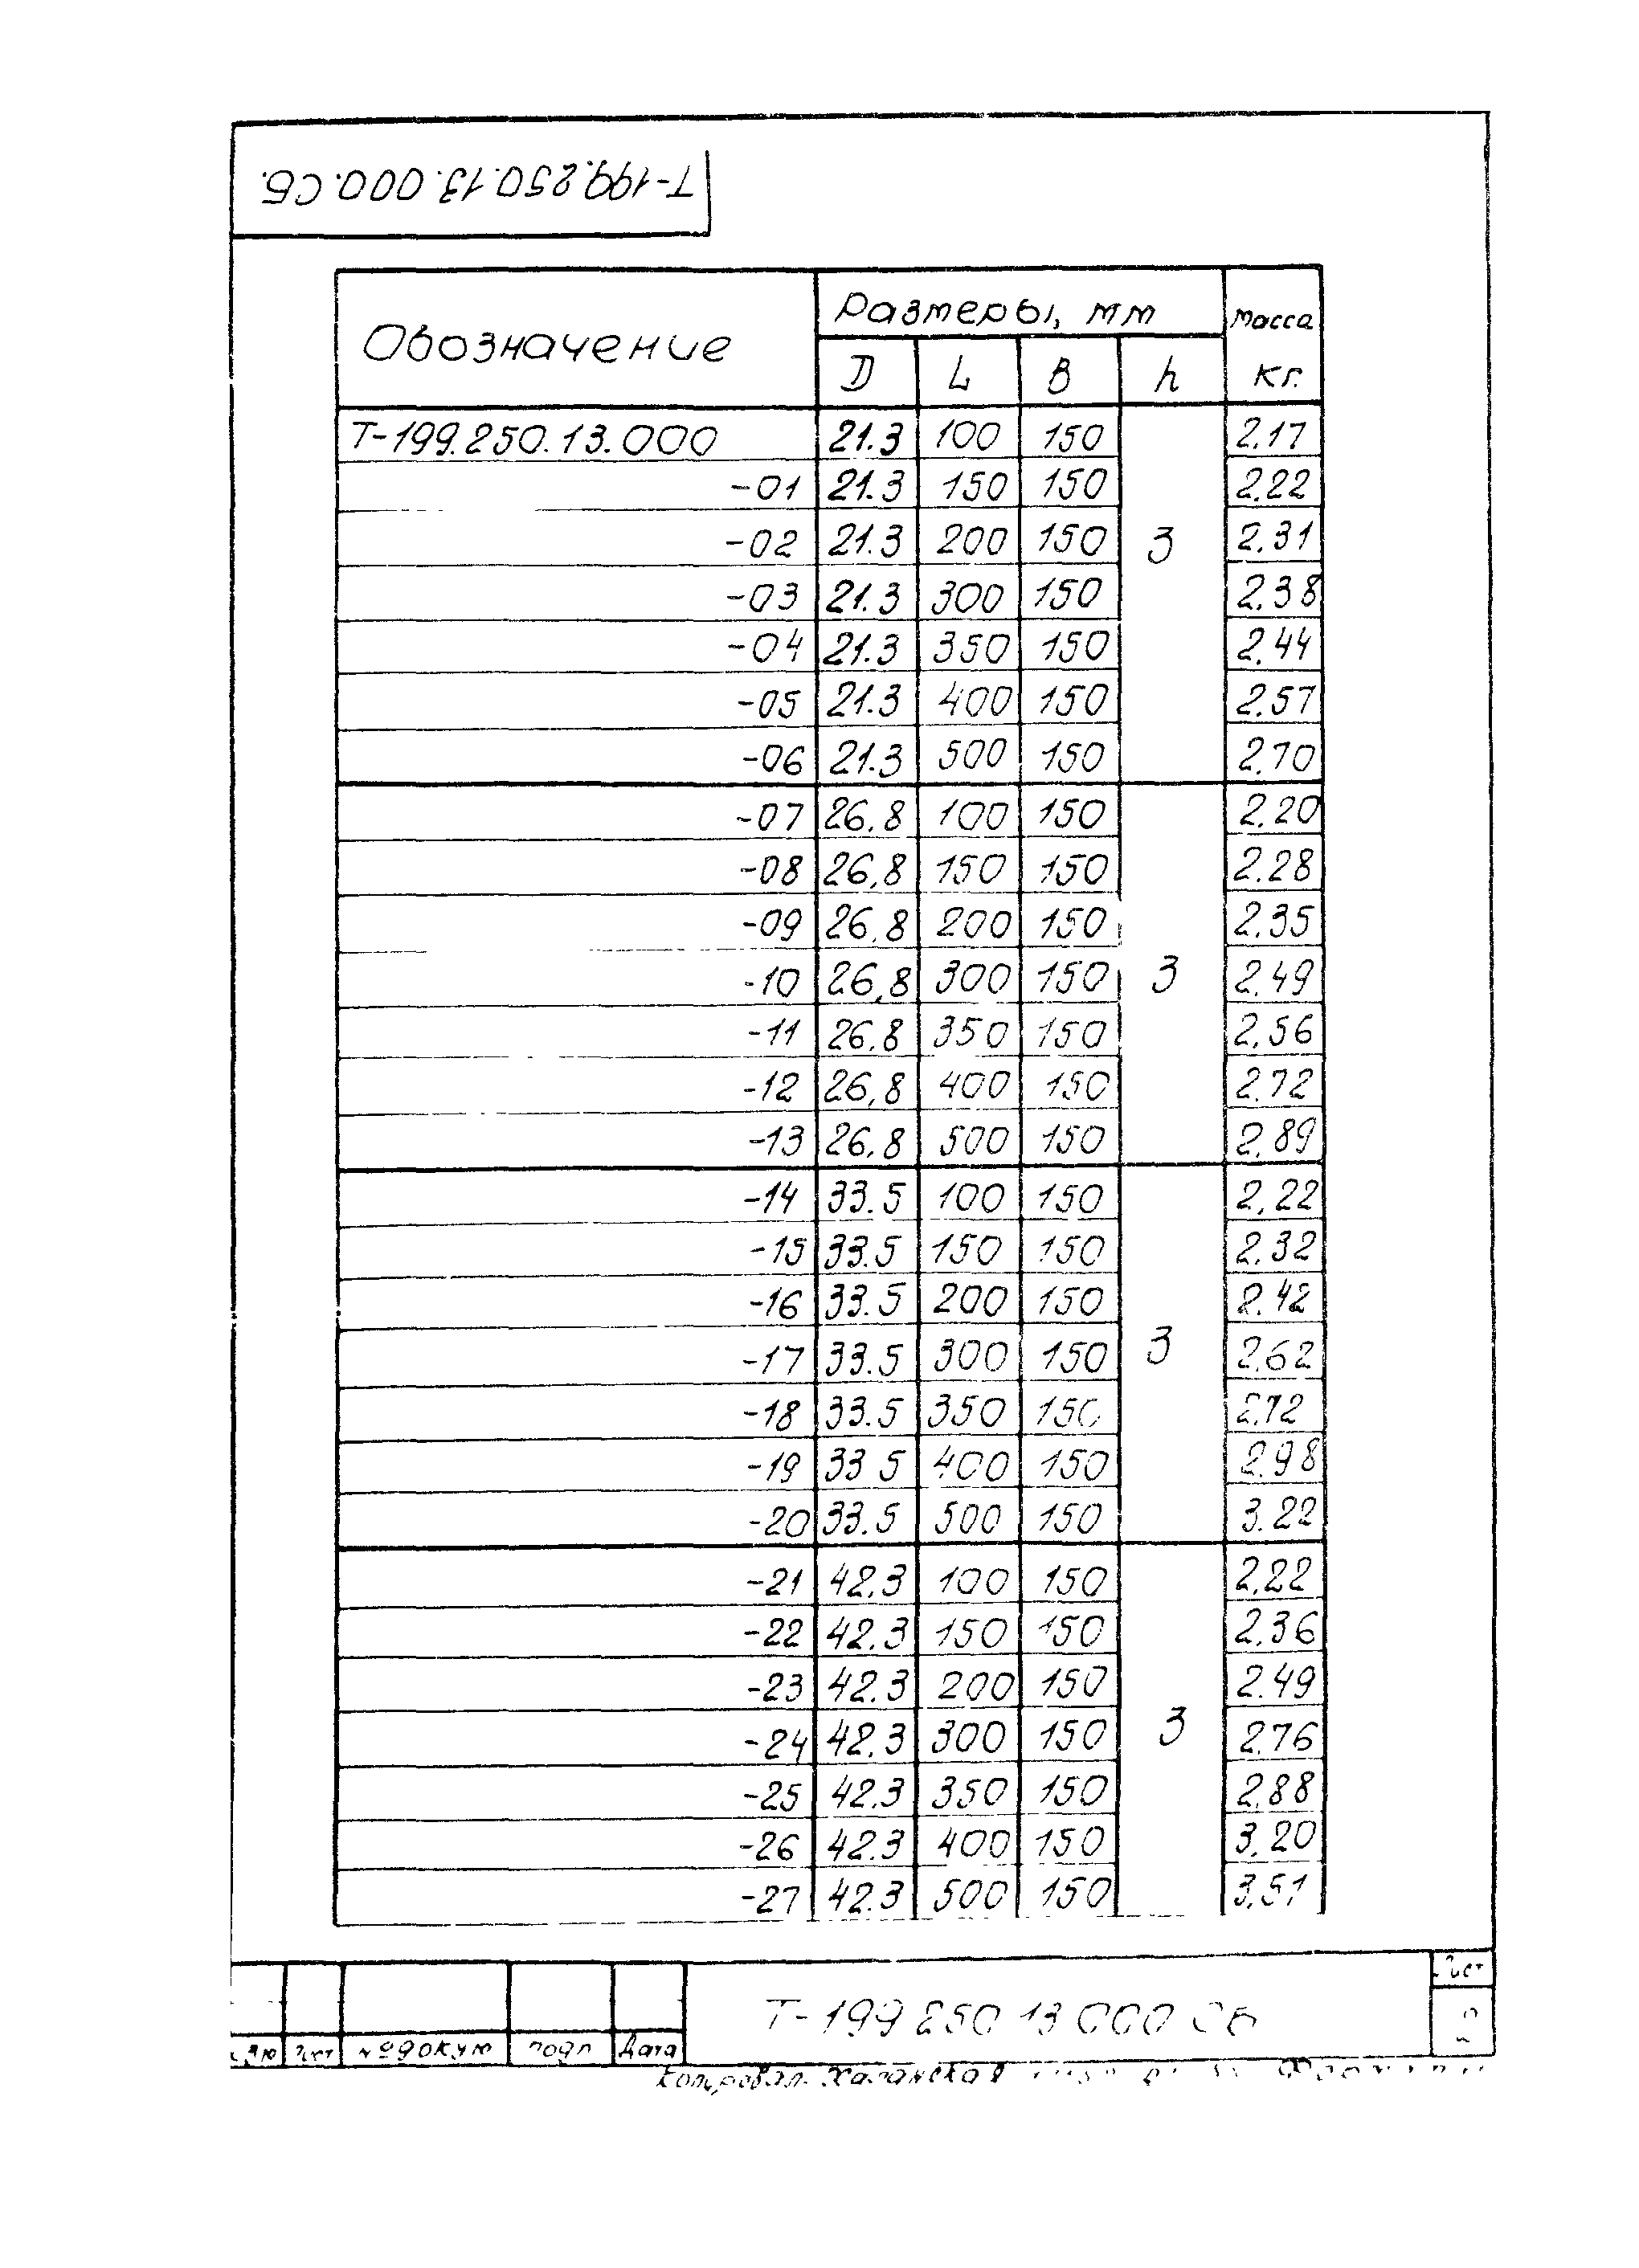 Т-199.250.13.000.СБ.
Обозначение Размеры, мм масса
D L B h кг.
Т-199.250.13.000 21.3 100 150 2.17
-01 21.3 150 150 2.22
-02 21.3 200 150 3 2.31
-03 21.3 300 150 2.38
-04 21.3 350 150 2.44
-05 21.3 400 150 2.57
-06 21.3 500 150 2.70
-07 26,8 100 150 2.20
-08 26,8 150 150 2.28
-09 26,8 200 150 2.35
-10 26,8 300 150 3 2.49
-11 26,8 350 150 2,56
-12 26,8 400 150 2.72
-13 26,8 500 150 2.89
-14 33.5 100 150 2,22
-15 33.5 150 150 2.32
-16 33.5 200 150 2.42
-17 33.5 300 150 3 2.62
-18 33.5 350 150 2.72
-19 33 5 400 150 2.98
-20 33.5 500 150 3.22
-21 42.3 100 150 2,22
-22 42.3 150 150 2.36
-23 42.3 200 150 2.49
-24 42.3 300 150 3 2.76
-25 42.3 350 150 2,88
-26 42.3 400 150 3,20
-27 42.3 500 150 3,51
Лист
Т-199 250 13 000 СБ
Лист № докум подп Дата
Копировал